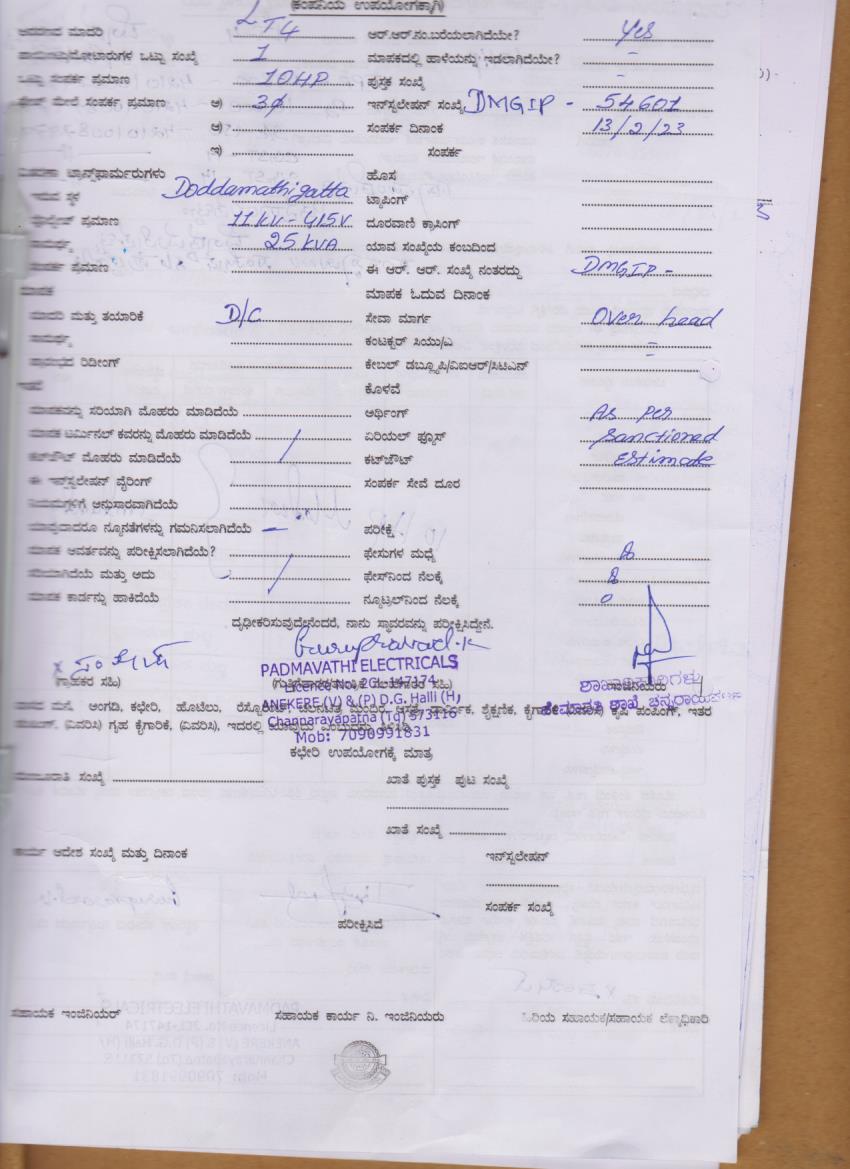 (ಕಂಪನಿಯ ಉಪಯೋಗಕ್ಕಾಗಿ)
ಮಾದರಿ LT4 ಆರ್.ಆರ್.ನಂ.ಬರೆಯಲಾಗಿದೆಯೇ? Yes
ಒಟ್ಟು ಸಂಖ್ಯೆ 1 ಮಾಪಕದಲ್ಲಿ ಹಾಳೆಯನ್ನು ಇಡಲಾಗಿದೆಯೇ? –
ಒಟ್ಟು ಸಂಪರ್ಕ ಪ್ರಮಾಣ 10HP ಪುಸ್ತಕ ಸಂಖ್ಯೆ –
ಮೇಲೆ ಸಂಪರ್ಕ ಪ್ರಮಾಣ ಅ) 3ϕ ಇನ್‌ಸ್ಟಲೇಷನ್ ಸಂಖ್ಯೆ DMGIP - 54601
ಆ) ಸಂಪರ್ಕ ದಿನಾಂಕ 13/2/23
ಇ) ಸಂಪರ್ಕ
ಟ್ರಾನ್ಸ್‌ಫಾರ್ಮರುಗಳು ಹೊಸ
ಇರುವ ಸ್ಥಳ Doddamathigatta ಟ್ಯಾಪಿಂಗ್
ವೋಲ್ಟೇಜ್ ಪ್ರಮಾಣ 11KV - 415V ದೂರವಾಣಿ ಕ್ರಾಸಿಂಗ್
ಸಾಮರ್ಥ್ಯ 25 KVA ಯಾವ ಸಂಖ್ಯೆಯ ಕಂಬದಿಂದ
ಸಂಪರ್ಕ ಪ್ರಮಾಣ ಈ ಆರ್. ಆರ್. ಸಂಖ್ಯೆ ನಂತರದ್ದು DMGIP -
ಮಾಪಕ ಮಾಪಕ ಓದುವ ದಿನಾಂಕ
ಮಾದರಿ ಮತ್ತು ತಯಾರಿಕೆ D/C ಸೇವಾ ಮಾರ್ಗ Over head
ಸಾಮರ್ಥ್ಯ ಕಂಟಕ್ಟರ್ ಸಿಯು/ಎ =
ಪ್ರಾರಂಭದ ರಿಡೀಂಗ್ ಕೇಬಲ್ ಡಬ್ಲ್ಯೂಪಿ/ವಿಐಆರ್/ಸಿಟಿಎನ್
ಕೊಳವೆ
ಮಾಪಕವನ್ನು ಸರಿಯಾಗಿ ಮೊಹರು ಮಾಡಿದೆಯೆ ಅರ್ಥಿಂಗ್ As per
ಮಾಪಕ ಟರ್ಮಿನಲ್ ಕವರನ್ನು ಮೊಹರು ಮಾಡಿದೆಯೆ ಏರಿಯಲ್ ಫ್ಯೂಸ್ Sanctioned
ಕಟ್‌ಔಟ್ ಮೊಹರು ಮಾಡಿದೆಯೆ ಕಟ್‌ಔಟ್ Estimate
ಈ ಇನ್‌ಸ್ಟಲೇಷನ್ ವೈರಿಂಗ್ ಸಂಪರ್ಕ ಸೇವೆ ದೂರ
ನಿಯಮಗಳಿಗೆ ಅನುಸಾರವಾಗಿದೆಯೆ
ಯಾವುದಾದರೂ ನ್ಯೂನತೆಗಳನ್ನು ಗಮನಿಸಲಾಗಿದೆಯೆ – ಪರೀಕ್ಷೆ
ಮಾಪಕ ಆವರ್ತವನ್ನು ಪರೀಕ್ಷಿಸಲಾಗಿದೆಯೆ? ಫೇಸುಗಳ ಮಧ್ಯೆ
ಸರಿಯಾಗಿದೆಯೆ ಮತ್ತು ಅದು ಫೇಸ್‌ನಿಂದ ನೆಲಕ್ಕೆ
ಮಾಪಕ ಕಾರ್ಡನ್ನು ಹಾಕಿದೆಯೆ ನ್ಯೂಟ್ರಲ್‌ನಿಂದ ನೆಲಕ್ಕೆ 0
ದೃಢೀಕರಿಸುವುದೇನೆಂದರೆ, ನಾನು ಸ್ಥಾವರವನ್ನು ಪರೀಕ್ಷಿಸಿದ್ದೇನೆ.
Guruprasad.K
PADMAVATHI ELECTRICALS
(ಗ್ರಾಹಕರ ಸಹಿ)
Licence No. 2CL-147174
ANEKERE (V) & (P) D.G. Halli (H)
Channarayapatna (Tq) 573116
Mob: 7090991831
ಶಾಖಾಧಿಕಾರಿಗಳು
ಮನೆ, ಅಂಗಡಿ, ಕಛೇರಿ, ಹೊಟೆಲು,
(ವಿವರಿಸಿ) ಗೃಹ ಕೈಗಾರಿಕೆ, (ವಿವರಿಸಿ), ಇದರಲ್ಲಿ
ಕಛೇರಿ ಉಪಯೋಗಕ್ಕೆ ಮಾತ್ರ
ಮಂಜೂರಾತಿ ಸಂಖ್ಯೆ ಖಾತೆ ಪುಸ್ತಕ ಪುಟ ಸಂಖ್ಯೆ
ಖಾತೆ ಸಂಖ್ಯೆ
ಕಾರ್ಯ ಆದೇಶ ಸಂಖ್ಯೆ ಮತ್ತು ದಿನಾಂಕ ಇನ್‌ಸ್ಟಲೇಷನ್
ಸಂಪರ್ಕ ಸಂಖ್ಯೆ
ಪರೀಕ್ಷಿಸಿದೆ
ಸಹಾಯಕ ಇಂಜಿನಿಯರ್ ಸಹಾಯಕ ಕಾರ್ಯ ನಿ. ಇಂಜಿನಿಯರು ಹಿರಿಯ ಸಹಾಯಕ/ಸಹಾಯಕ ಲೆಕ್ಕಾಧಿಕಾರಿ